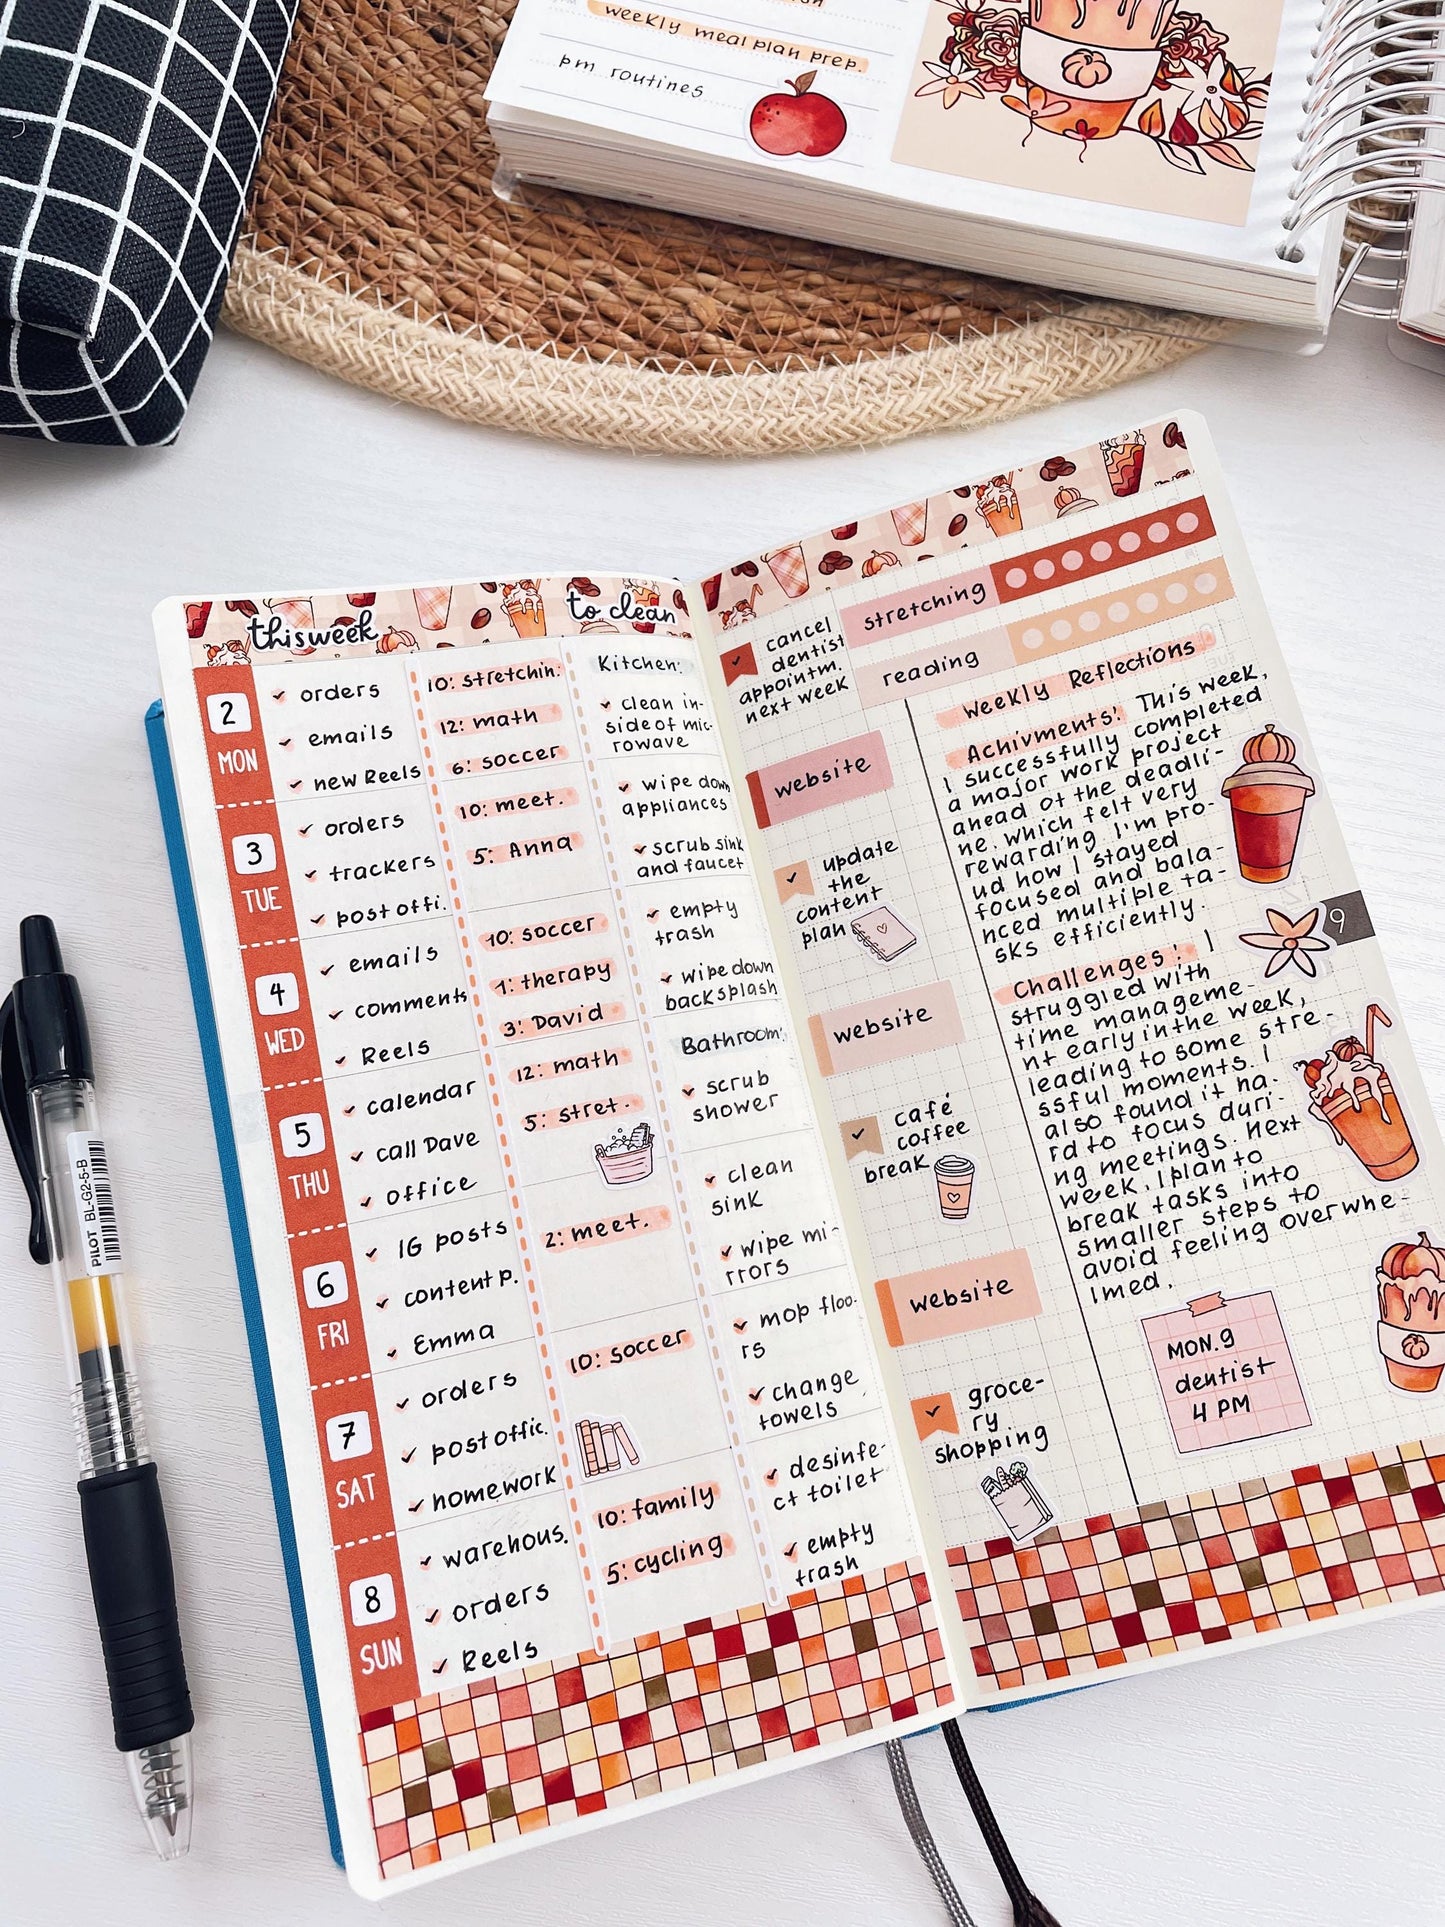 weekly meal plan prep.
pm routines
this week
to clean
2
MON
✓ orders
✓ emails
✓ new Reels
10: stretchin.
12: math
6: soccer
3
TUE
✓ orders
✓ trackers
✓ post offi.
10: meet.
5: Anna
4
WED
✓ emails
✓ comments
✓ Reels
10: soccer
1: therapy
3: David
5
THU
✓ calendar
✓ call Dave
✓ office
12: math
5: stret.
6
FRI
✓ IG posts
✓ content p.
✓ Emma
2: meet.
7
SAT
✓ orders
✓ post offic.
✓ homework
10: soccer
8
SUN
✓ warehous.
✓ orders
✓ Reels
10: family
5: cycling
Kitchen:
✓ clean in-
side of mic-
rowave
✓ wipe down
appliances
✓ scrub sink
and faucet
✓ empty
trash
✓ wipe down
backsplash
Bathroom:
✓ scrub
shower
✓ clean
sink
✓ wipe mi-
rrors
✓ mop floo-
rs
✓ change
towels
✓ desinfe-
ct toilet
✓ empty
trash
✓ cancel
dentist
appointm.
next week
website
✓ update
the
content
plan
website
✓ café
coffee
break
website
✓ groce-
ry
shopping
stretching
reading
Weekly Reflections
Achivments: This week,
I successfully completed
a major work project
ahead of the deadli-
ne, which felt very
rewarding. I'm pro-
ud how I stayed
focused and bala-
nced multiple ta-
sks efficiently.
Challenges: I
struggled with
time manageme-
nt early in the week,
leading to some stre-
ssful moments. I
also found it ha-
rd to focus duri-
ng meetings. Next
week, I plan to
break tasks into
smaller steps to
avoid feeling overwhe-
lmed.
MON.9
dentist
4 PM
9
PILOT BL-G2-5-B